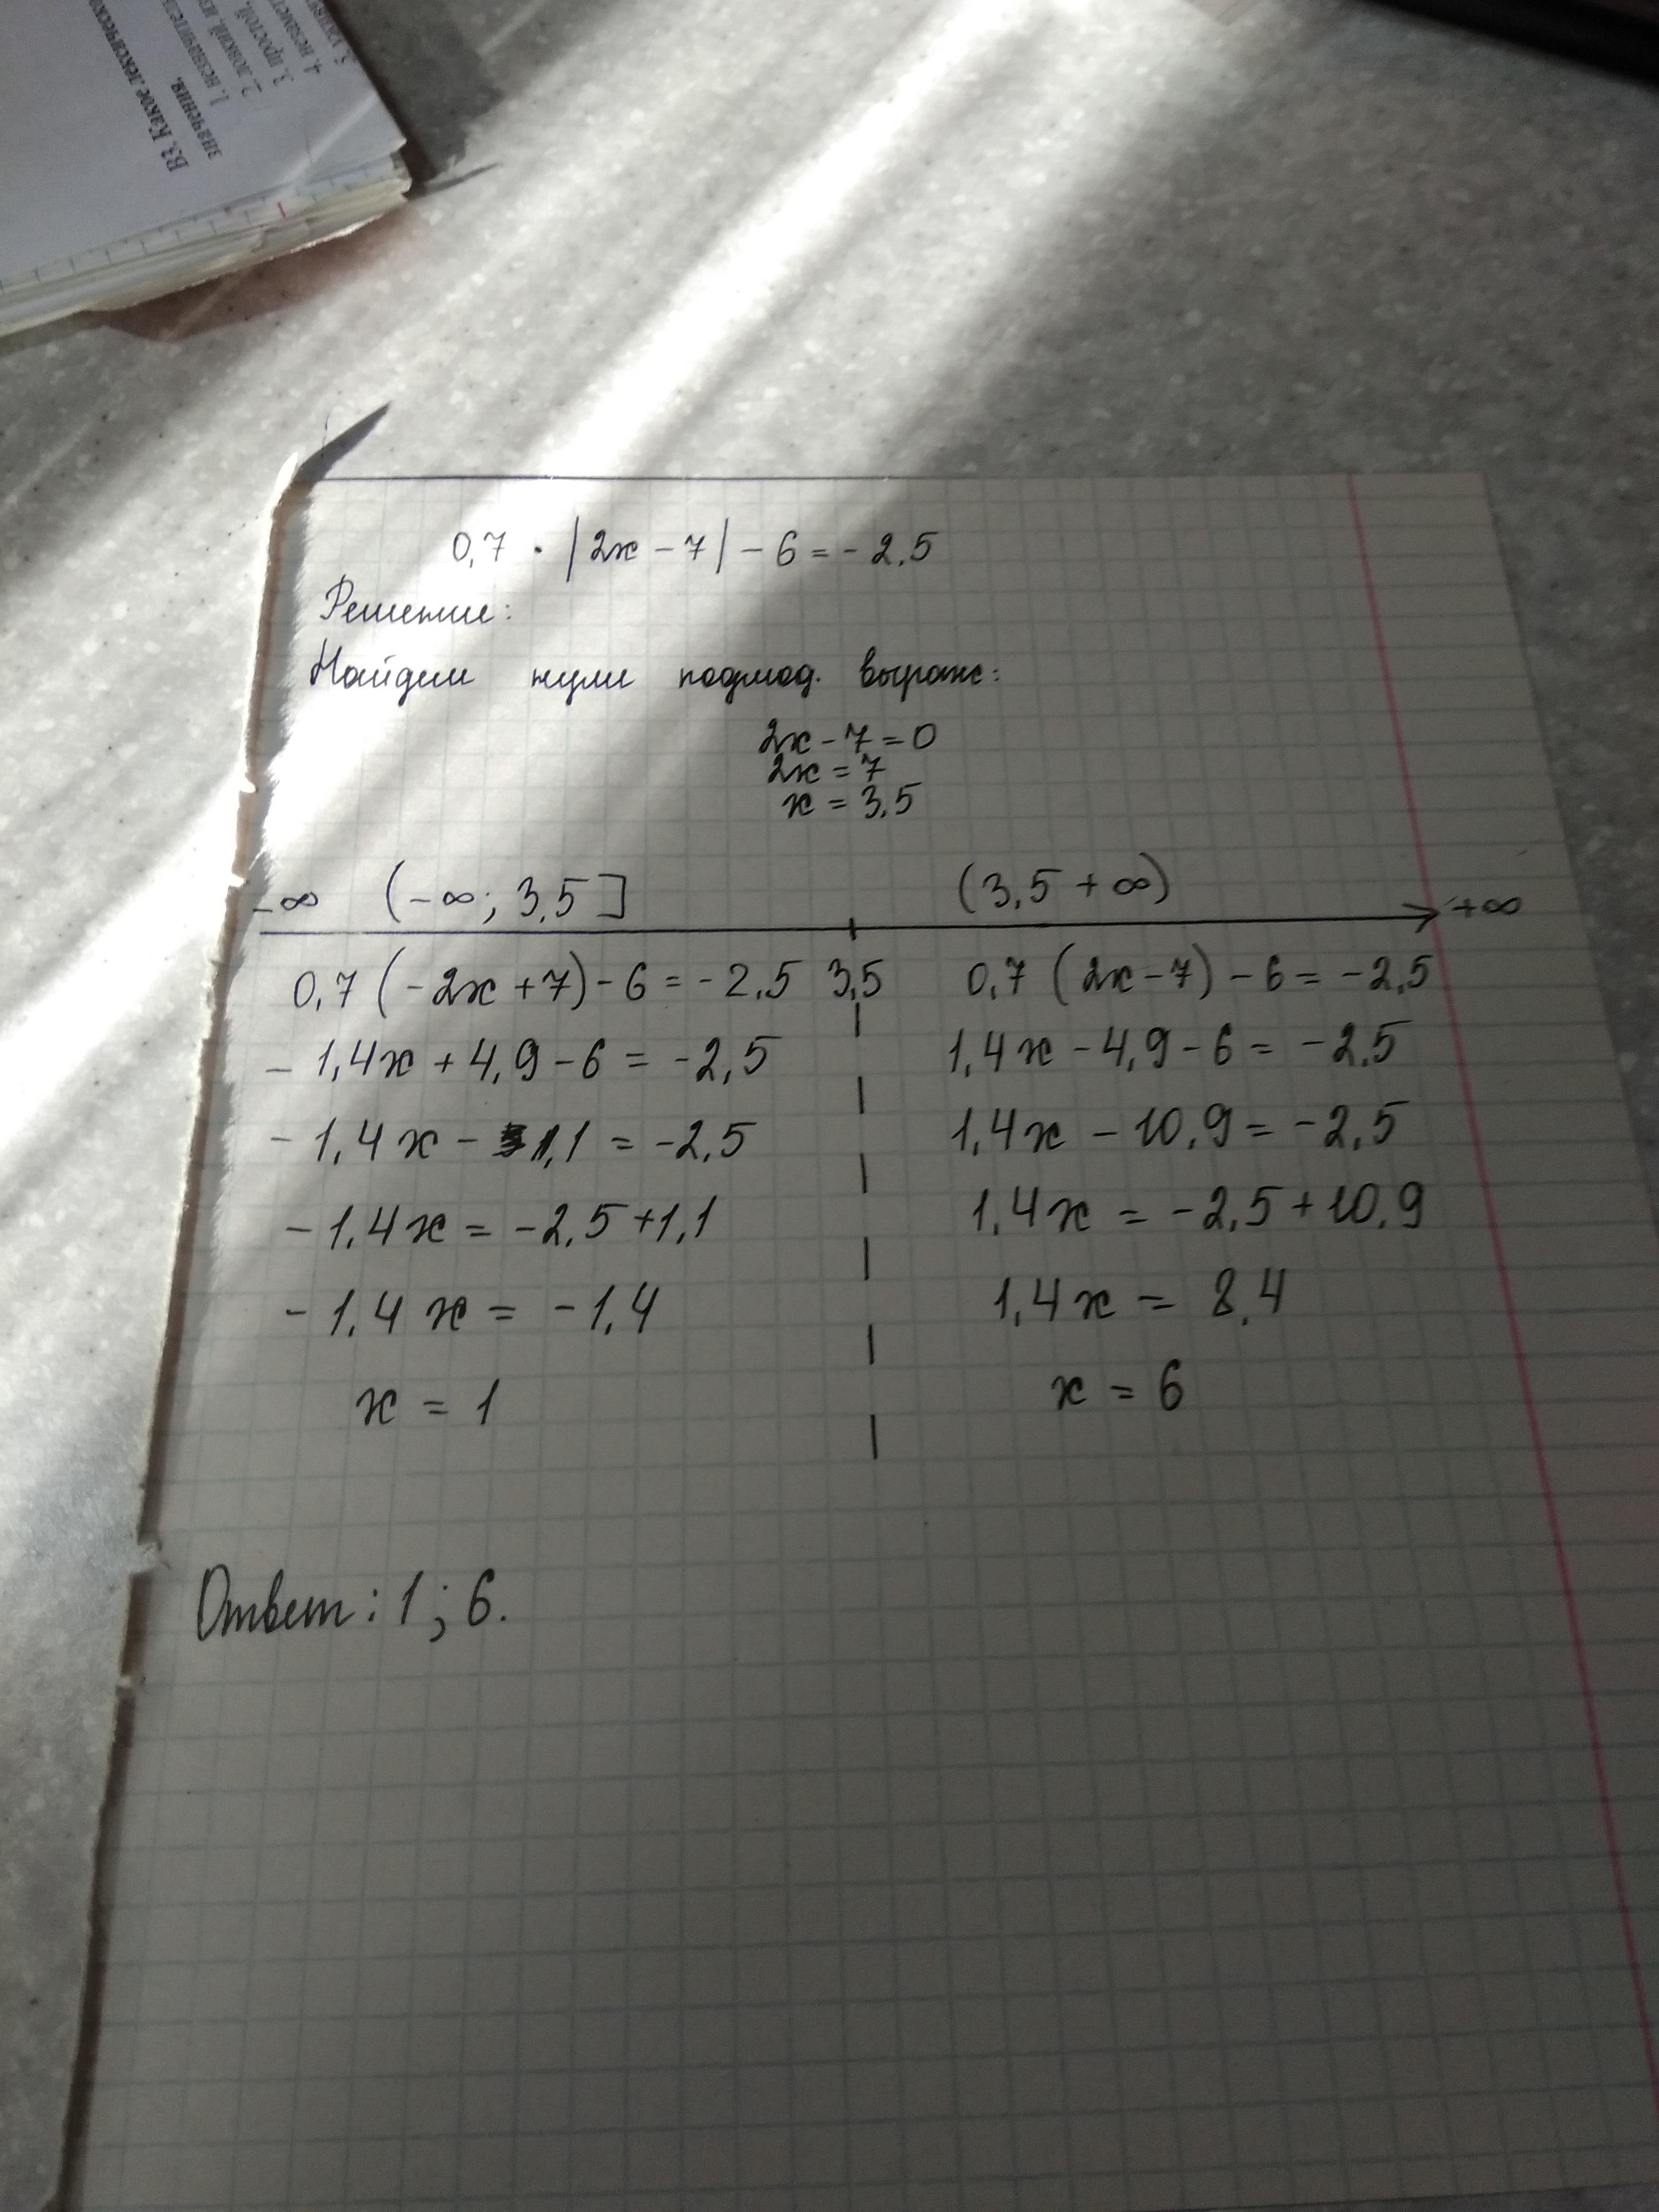 В3. Какое лексическо
значения.
1. незначитель
2. ловкий, из
3. простой,
4. незамет
0,7 · |2x - 7| - 6 = -2,5
Решение:
Найдем нули подмод. выраж:
2x - 7 = 0
2x = 7
x = 3,5
-∞ (-∞; 3,5] (3,5 + ∞) +∞
0,7 (-2x + 7) - 6 = -2,5 3,5 0,7 (2x - 7) - 6 = -2,5
- 1,4x + 4,9 - 6 = -2,5 1,4x - 4,9 - 6 = -2,5
- 1,4x - 1,1 = -2,5 1,4x - 10,9 = -2,5
- 1,4x = -2,5 + 1,1 1,4x = -2,5 + 10,9
- 1,4x = -1,4 1,4x = 8,4
x = 1 x = 6
Ответ: 1; 6.